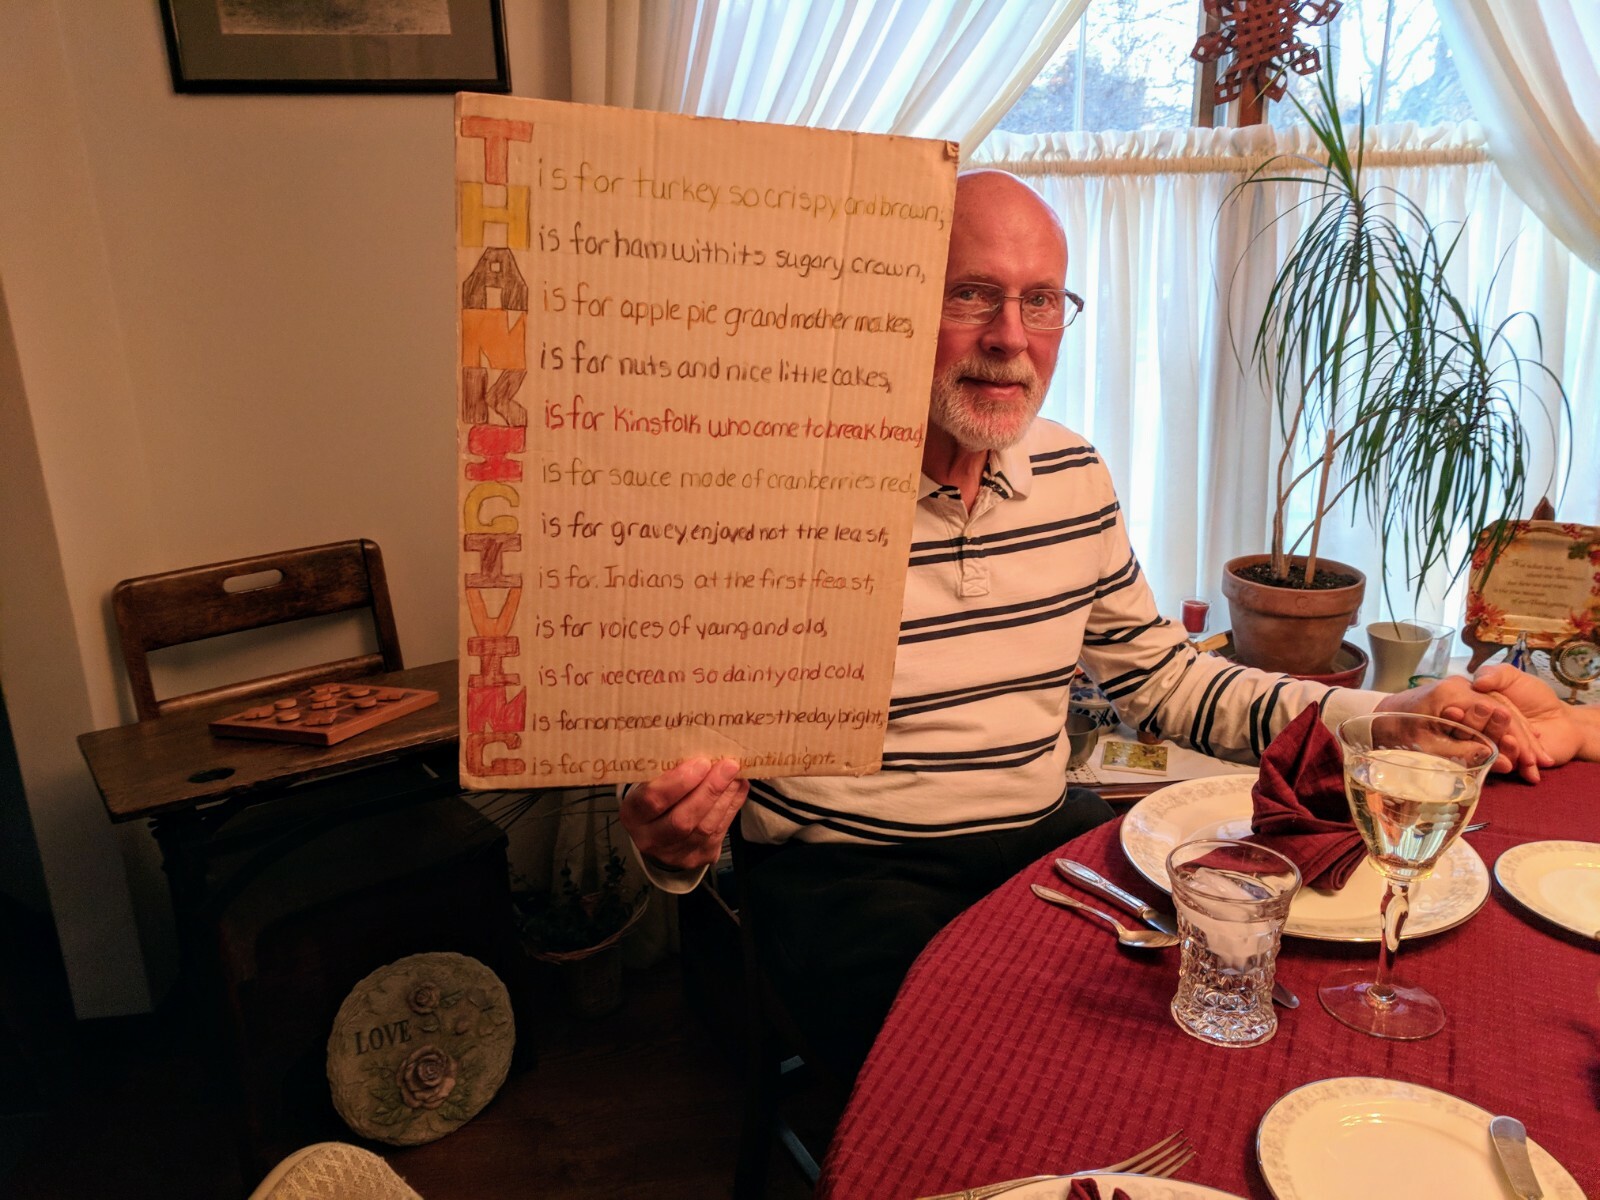 T is for turkey so crispy and brown,
H is for ham with its sugary crown,
A is for apple pie grandmother makes,
N is for nuts and nice little cakes,
K is for kinsfolk who come to break bread,
S is for sauce made of cranberries red,
G is for gravey, enjoyed not the least,
I is for. Indians at the first feast,
V is for voices of young and old,
I is for ice cream so dainty and cold,
N is for nonsense which makes the day bright,
G is for games we until night.
LOVE